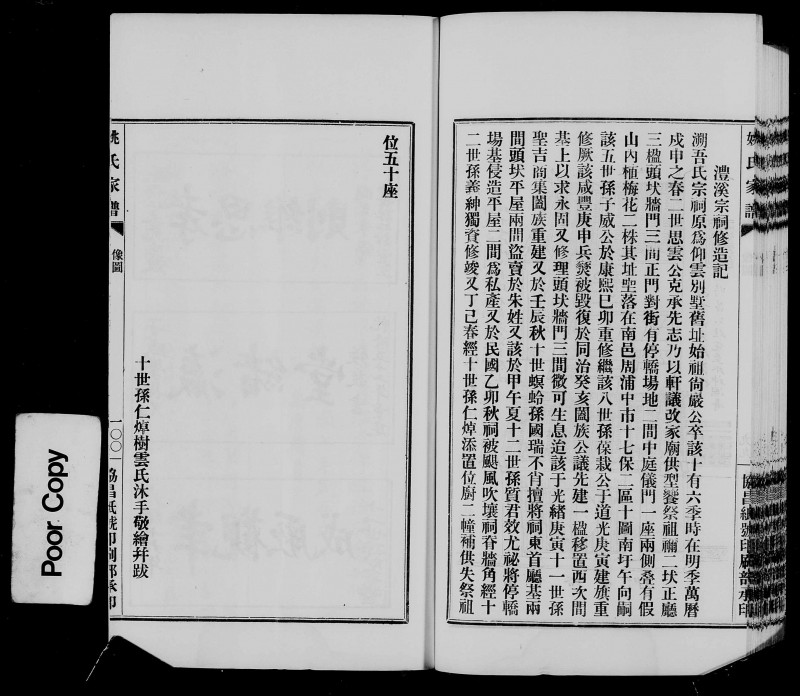 姚氏家譜
協昌紙號印刷部承印
澧溪宗祠修造記
溯吾氏宗祠原爲仰雲別墅舊址始祖尙嚴公卒該十有六季時在明季萬曆
戍申之春二世思雲公克承先志乃以軒議改家廟供型饗祭祖禰二埃正廳
三楹頭埃牆門三間正門對街有停轎場地二間中庭儀門一座兩側叠有假
山內植梅花二株其址坐落在南邑周浦中市十七保二區十圖南圩午向嗣
該五世孫子威公於康熙己卯重修繼該八世孫葆栽公于道光庚寅建旗重
修厥該咸豐庚申兵燹被毀復於同治癸亥闔族公議先建一楹移置西次間
基上以求永固又修理頭埃牆門三間微可生息迨該于光緒庚寅十一世孫
聖吉商集闔族重建又於壬辰秋十世螟蛉孫國瑞不肖擅將祠東首廳基兩
間頭埃平屋兩間盜賣於朱姓又該於甲午夏十二世孫質君效尤祕將停轎
場基侵造平屋二間爲私產又於民國乙卯秋祠被颶風吹壞祠脊牆角經十
二世孫義紳獨資修竣又丁己春經十世孫仁焯添置位廚二幢補供失祭祖
位五十座
十世孫仁焯樹雲氏沐手敬繪幷跋
姚氏家譜
像圖
一〇〇
協昌紙號印刷部承印
Poor Copy